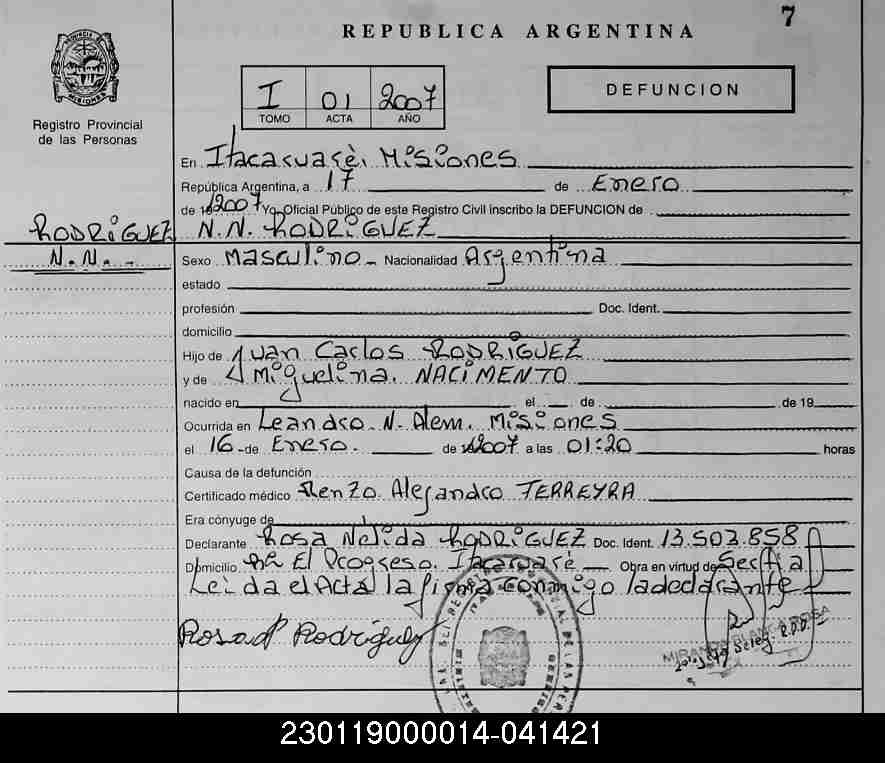 7
REPUBLICA ARGENTINA
PROVINCIA DE MISIONES
Registro Provincial
de las Personas
I 01 2007
TOMO ACTA AÑO
DEFUNCION
En Itacaruarè, Misiones
República Argentina, a 17 de Enero
de 2007 Yo, Oficial Público de este Registro Civil inscribo la DEFUNCION de
RODRIGUEZ N.N. RODRIGUEZ
N.N.- Sexo Masculino - Nacionalidad Argentina
estado
profesión Doc. Ident.
domicilio
Hijo de Juan Carlos RODRIGUEZ
y de Miguelina. NACIMENTO
nacido en el de de 19
Ocurrida en Leandro. N. Alem. Misiones
el 16 - de Enero. de 2007 a las 01:20 horas
Causa de la defunción
Certificado médico Renzo. Alejandro TERREYRA
Era cónyuge de
Declarante Rosa Nèlida RODRIGUEZ Doc. Ident. 13.503.858
Domicilio El Progreso. Itacaruarè Obra en virtud de
Leida el Acta la firma conmigo la declarante
Rosa Rodriguez
230119000014-041421